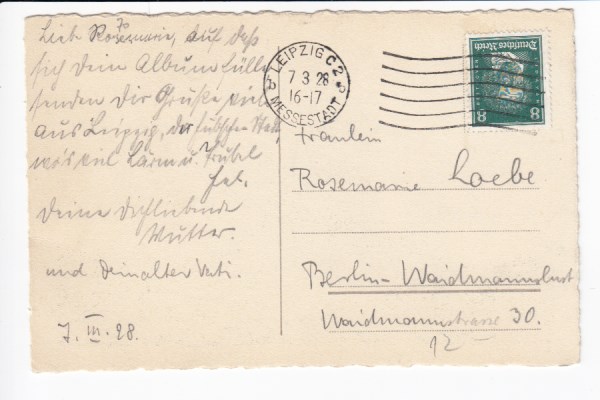 Liebe Rosemarie, auf daß
sich Dein Album fülle
senden Dir Grüße viele
aus Leipzig, der hübschen Stadt,
wo's viel Lärm u. Trubel
hat.
Deine Dichliebende
Mutter.
und Dein alter Vati.
7. III. 28.
LEIPZIG C 2
7 3 28
16-17
b b
MESSESTADT
Deutsches Reich
8 8
Fräulein
Rosemarie Loebe
Berlin-Waidmannslust
Waidmannstrasse 30.
12